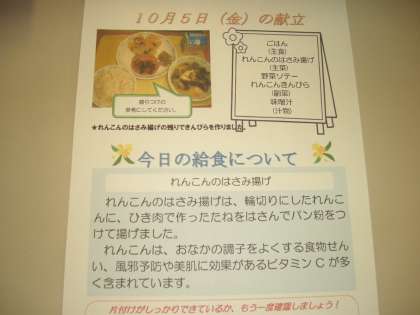 10月5日（金）の献立
ごはん
（主食）
れんこんのはさみ揚げ
（主菜）
野菜ソテー
れんこんきんぴら
（副菜）
味噌汁
（汁物）
盛りつけの
参考にしてください。
★れんこんのはさみ揚げの残りできんぴらを作りました。
今日の給食について
れんこんのはさみ揚げ
れんこんのはさみ揚げは、輪切りにしたれんこ
んに、ひき肉で作ったたねをはさんでパン粉をつ
けて揚げました。
れんこんは、おなかの調子をよくする食物せん
い、風邪予防や美肌に効果があるビタミンCが多
く含まれています。
片付けがしっかりできているか、もう一度確認しましょう！